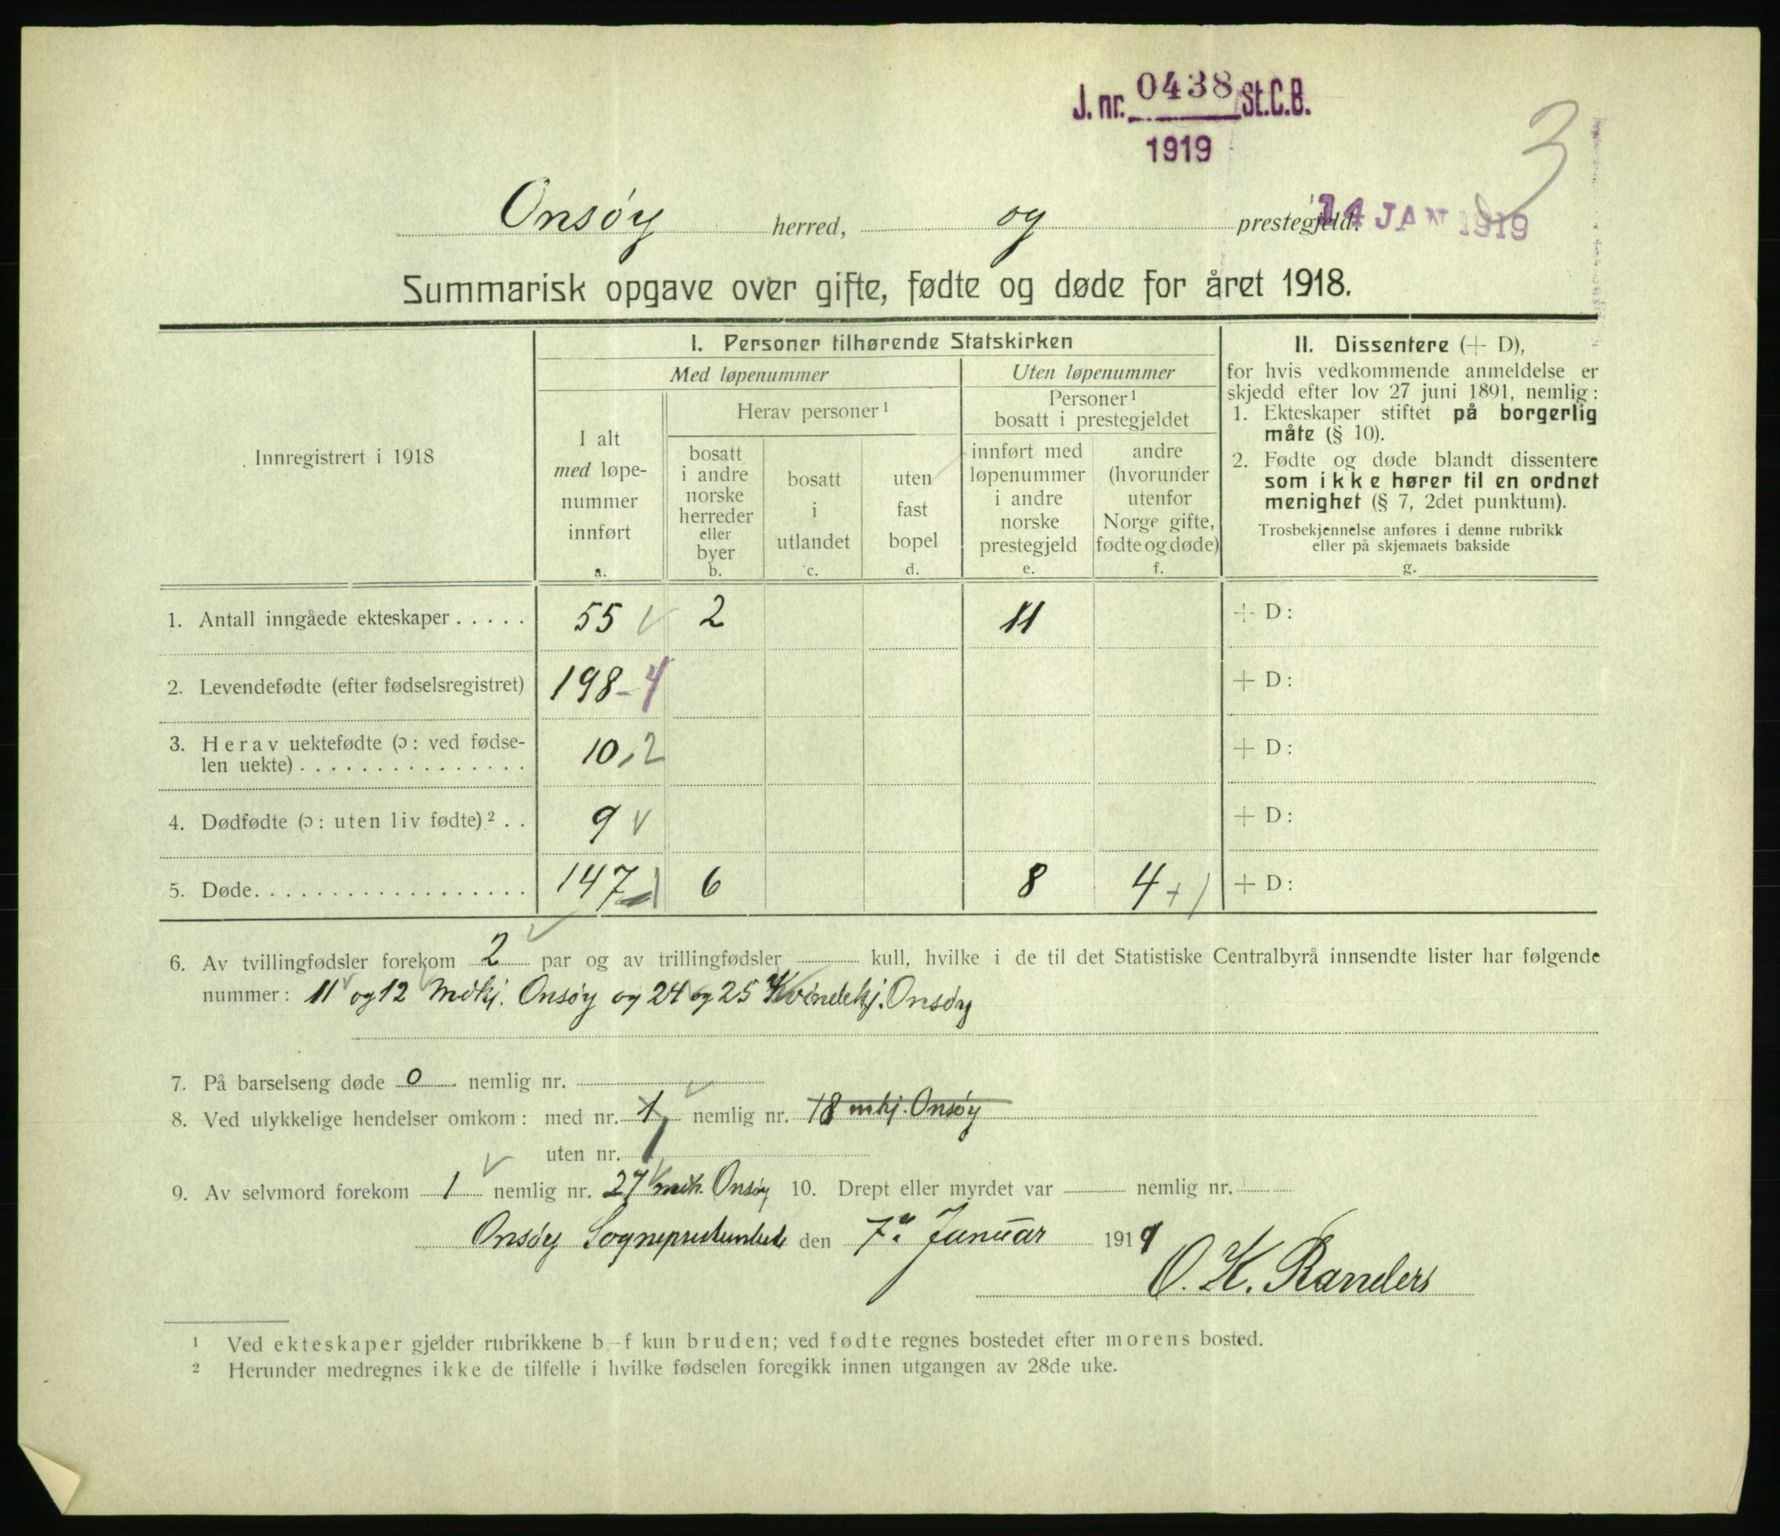 J. nr. 0438 St.C.B.
1919
3
Onsøy herred, og prestegjeld.
14 JAN 1919
Summarisk opgave over gifte, fødte og døde for året 1918.
Innregistrert i 1918
I. Personer tilhørende Statskirken
Med løpenummer
Uten løpenummer
I alt
med løpe-
nummer
innført
a.
Herav personer¹
bosatt
i andre
norske
herreder
eller
byer
b.
bosatt
i
utlandet
c.
uten
fast
bopel
d.
Personer¹
bosatt i prestegjeldet
innført med
løpenummer
i andre
norske
prestegjeld
e.
andre
(hvorunder
utenfor
Norge gifte,
fødte og døde)
f.
II. Dissentere (+ D),
for hvis vedkommende anmeldelse er
skjedd efter lov 27 juni 1891, nemlig:
1. Ekteskaper stiftet på borgerlig
måte (§ 10).
2. Fødte og døde blandt dissentere
som ikke hører til en ordnet
menighet (§ 7, 2det punktum).
Trosbekjennelse anføres i denne rubrikk
eller på skjemaets bakside
g.
1. Antall inngåede ekteskaper . . . . . 55 √ 2 11 + D:
2. Levendefødte (efter fødselsregistret) 198 - 4 + D:
3. Herav uektefødte (ɔ: ved fødse-
len uekte) . . . . . . . . . . . . . . . 10, 2 + D:
4. Dødfødte (ɔ: uten liv fødte)² . . 9 √ + D:
5. Døde. . . . . . . . . . . . . . . . . . 147 - 1 6 8 4 + 1 + D:
6. Av tvillingfødsler forekom 2 par og av trillingfødsler kull, hvilke i de til det Statistiske Centralbyrå innsendte lister har følgende
nummer: 11 og 12 Mdkj. Onsøy og 24 og 25 Kvindekj. Onsøy
7. På barselseng døde 0 nemlig nr.
8. Ved ulykkelige hendelser omkom: med nr. 1 nemlig nr. 18 mkj. Onsøy
uten nr. 1
9. Av selvmord forekom 1 nemlig nr. 27 mk. Onsøy 10. Drept eller myrdet var nemlig nr.
Onsøy Sogneprestembede den 7de Januar 1919
O. K. Randers
¹ Ved ekteskaper gjelder rubrikkene b–f kun bruden; ved fødte regnes bostedet efter morens bosted.
² Herunder medregnes ikke de tilfelle i hvilke fødselen foregikk innen utgangen av 28de uke.